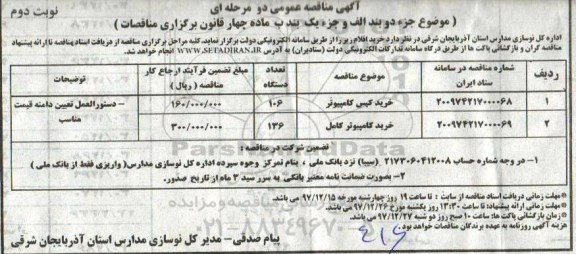 آگهی مناقصه عمومی دو مرحله ای
نوبت دوم
( موضوع جزء دو بند الف و جزء یک بند ب ماده چهار قانون برگزاری مناقصات )
اداره کل نوسازی مدارس استان آذربایجان شرقی در نظر دارد خرید اقلام زیر را از طریق سامانه الکترونیکی دولت برگزار نماید. کلیه مراحل برگزاری مناقصه از دریافت اسناد مناقصه تا ارائه پیشنهاد
مناقصه گران و بازگشائی پاکت ها از طریق درگاه سامانه تدارکات الکترونیکی دولت (ستادیران) به آدرس WWW.SETADIRAN.IR انجام خواهد شد.
ردیف
شماره مناقصه در سامانه ستاد ایران
موضوع مناقصه
تعداد دستگاه
مبلغ تضمین فرآیند ارجاع کار مناقصه ( ریال )
توضیحات
۱
۲۰۰۹۷۴۲۱۷۰۰۰۰۶۸
خرید کیس کامپیوتر
۱۰۶
۱۶۰/۰۰۰/۰۰۰
- دستورالعمل تعیین دامنه قیمت مناسب
۲
۲۰۰۹۷۴۲۱۷۰۰۰۰۶۹
خرید کامپیوتر کامل
۱۳۶
۳۰۰/۰۰۰/۰۰۰
تضمین شرکت در مناقصه :
۱- در وجه شماره حساب ۲۱۷۳۰۶۰۴۱۲۰۰۸ (سیبا) نزد بانک ملی ، بنام تمرکز وجوه سپرده اداره کل نوسازی مدارس( واریزی فقط از بانک ملی )
۲- بصورت ضمانت نامه معتبر بانکی به سررسید ۳ ماه از تاریخ صدور.
* مهلت زمانی دریافت اسناد مناقصه از سایت : تا ساعت ۱۹ روز چهارشنبه مورخه ۹۷/۱۲/۱۵ می باشد.
* مهلت زمانی ارائه پیشنهاد: تا ساعت ۱۳:۳۰ روز یکشنبه مورخ ۹۷/۱۲/۲۶ می باشد.
* زمان بازگشائی پاکت ها: ساعت ۱۰ صبح روز دو شنبه ۹۷/۱۲/۲۷ می باشد.
هزینه آگهی روزنامه به عهده برندگان مناقصات خواهد بود.
پیام صدقی - مدیر کل نوسازی مدارس استان آذربایجان شرقی
۰۲۱-۸۸۳۴۹۶۷۰